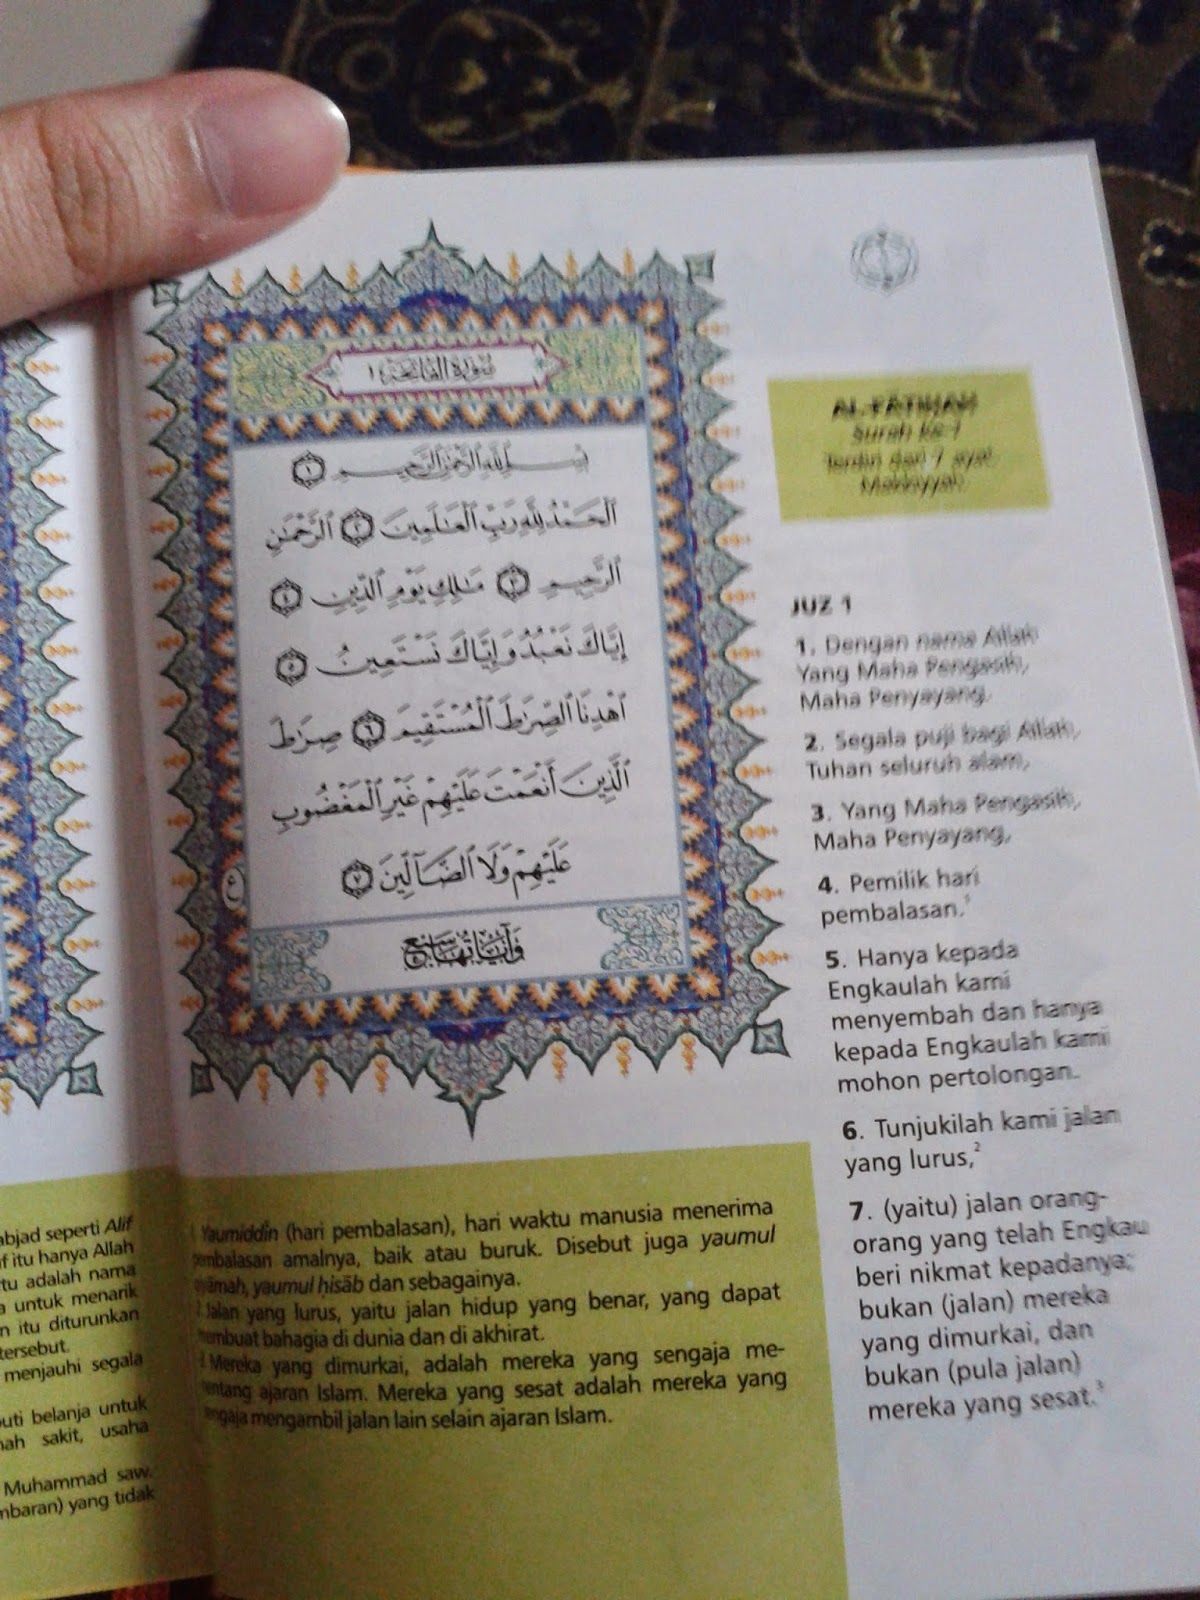 سورة الفاتحة ١
بِسْمِ ٱللَّهِ ٱلرَّحْمَٰنِ ٱلرَّحِيمِ ١
ٱلْحَمْدُ لِلَّهِ رَبِّ ٱلْعَٰلَمِينَ ٢ ٱلرَّحْمَٰنِ
ٱلرَّحِيمِ ٣ مَٰلِكِ يَوْمِ ٱلدِّينِ ٤
إِيَّاكَ نَعْبُدُ وَإِيَّاكَ نَسْتَعِينُ ٥
ٱهْدِنَا ٱلصِّرَٰطَ ٱلْمُسْتَقِيمَ ٦ صِرَٰطَ
ٱلَّذِينَ أَنْعَمْتَ عَلَيْهِمْ غَيْرِ ٱلْمَغْضُوبِ
عَلَيْهِمْ وَلَا ٱلضَّآلِّينَ ٧
ع
وآياتها سبع
AL-FĀTIḤAH
Surah ke-1
Terdiri dari 7 ayat
Makkiyyah
JUZ 1
1. Dengan nama Allah
Yang Maha Pengasih,
Maha Penyayang.
2. Segala puji bagi Allah,
Tuhan seluruh alam,
3. Yang Maha Pengasih,
Maha Penyayang,
4. Pemilik hari
pembalasan.¹
5. Hanya kepada
Engkaulah kami
menyembah dan hanya
kepada Engkaulah kami
mohon pertolongan.
6. Tunjukilah kami jalan
yang lurus,²
7. (yaitu) jalan orang-
orang yang telah Engkau
beri nikmat kepadanya;
bukan (jalan) mereka
yang dimurkai, dan
bukan (pula jalan)
mereka yang sesat.³
Yaumiddīn (hari pembalasan), hari waktu manusia menerima
pembalasan amalnya, baik atau buruk. Disebut juga yaumul
qiyāmah, yaumul ḥisāb dan sebagainya.
² Jalan yang lurus, yaitu jalan hidup yang benar, yang dapat
membuat bahagia di dunia dan di akhirat.
³ Mereka yang dimurkai, adalah mereka yang sengaja me-
nentang ajaran Islam. Mereka yang sesat adalah mereka yang
sengaja mengambil jalan lain selain ajaran Islam.
abjad seperti Alif
itu hanya Allah
adalah nama
untuk menarik
itu diturunkan
tersebut.
menjauhi segala
belanja untuk
sakit, usaha
Muhammad saw.
yang tidak